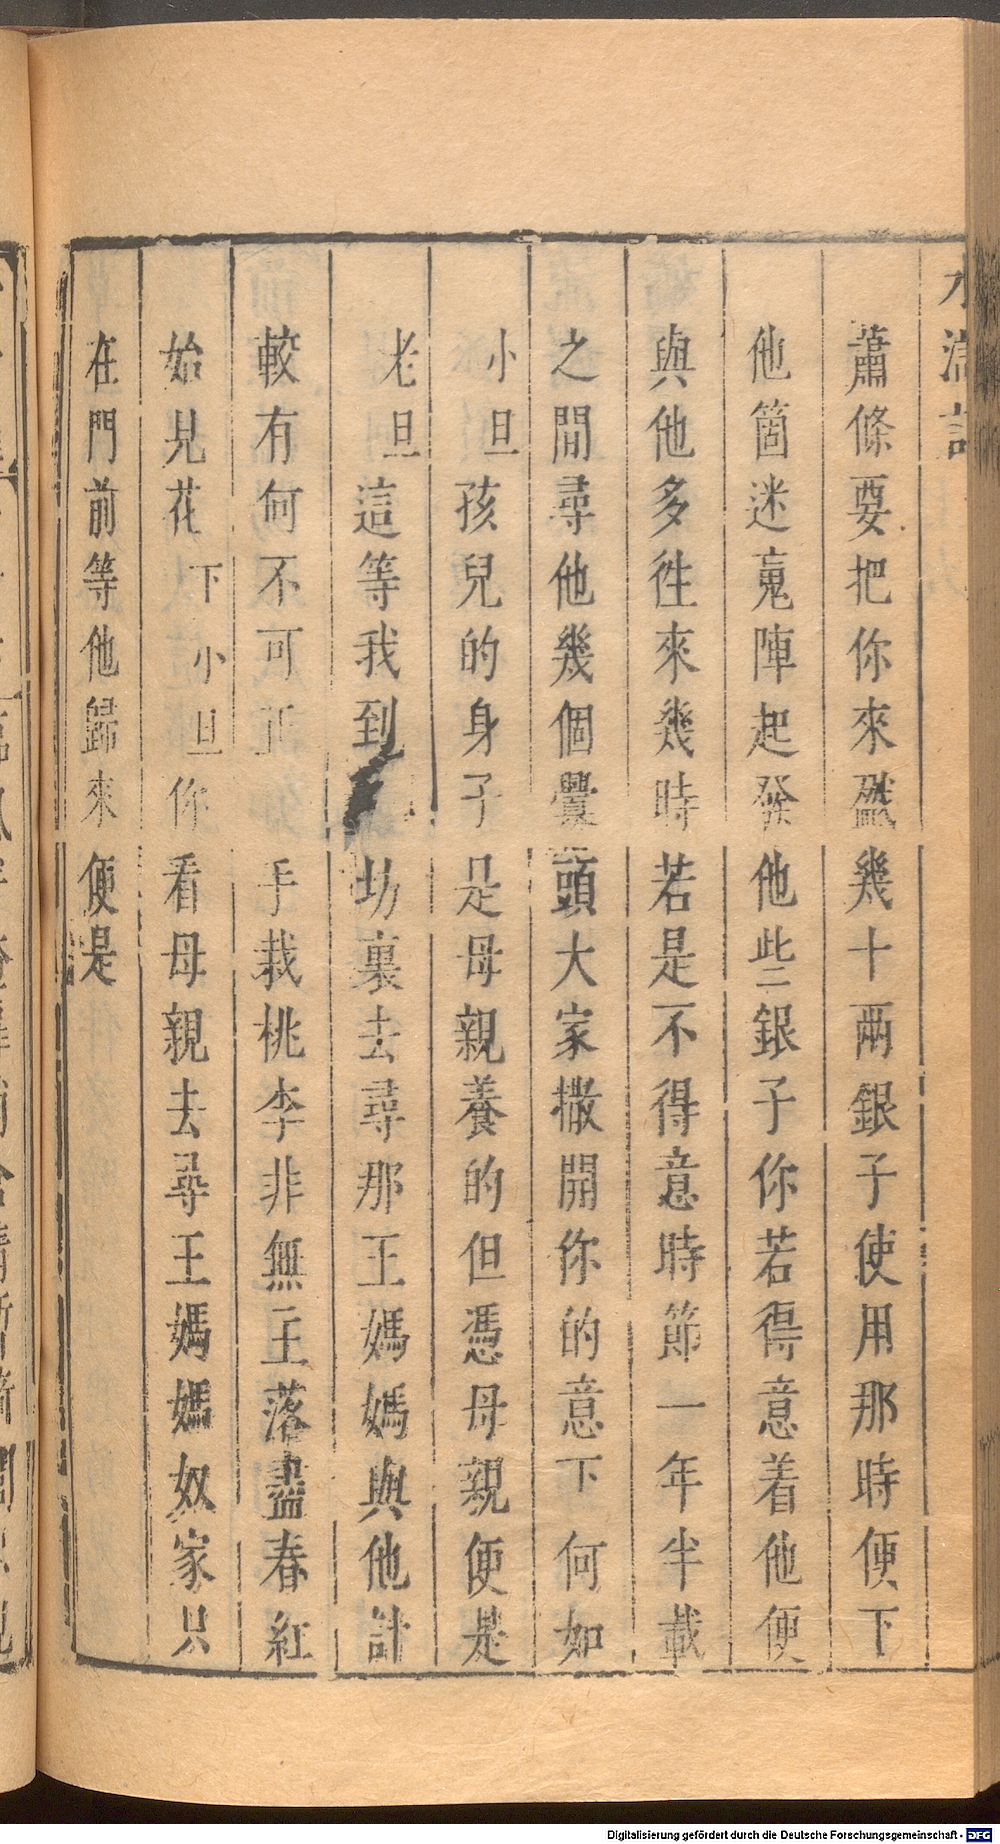 水滸記
蕭條要把你來盤幾十兩銀子使用那時便下
他箇迷䰟陣起發他些銀子你若得意着他便
與他多徃來幾時若是不得意時節一年半載
之間尋他幾個釁頭大家撒開你的意下何如
小旦孩兒的身子是母親養的但憑母親便是
老旦這等我到坊裏去尋那王媽媽與他計
較有何不可正手栽桃李非無主落盡春紅
始見花下小旦你看母親去尋王媽媽奴家只
在門前等他歸來便是
Digitalisierung gefördert durch die Deutsche Forschungsgemeinschaft - DFG